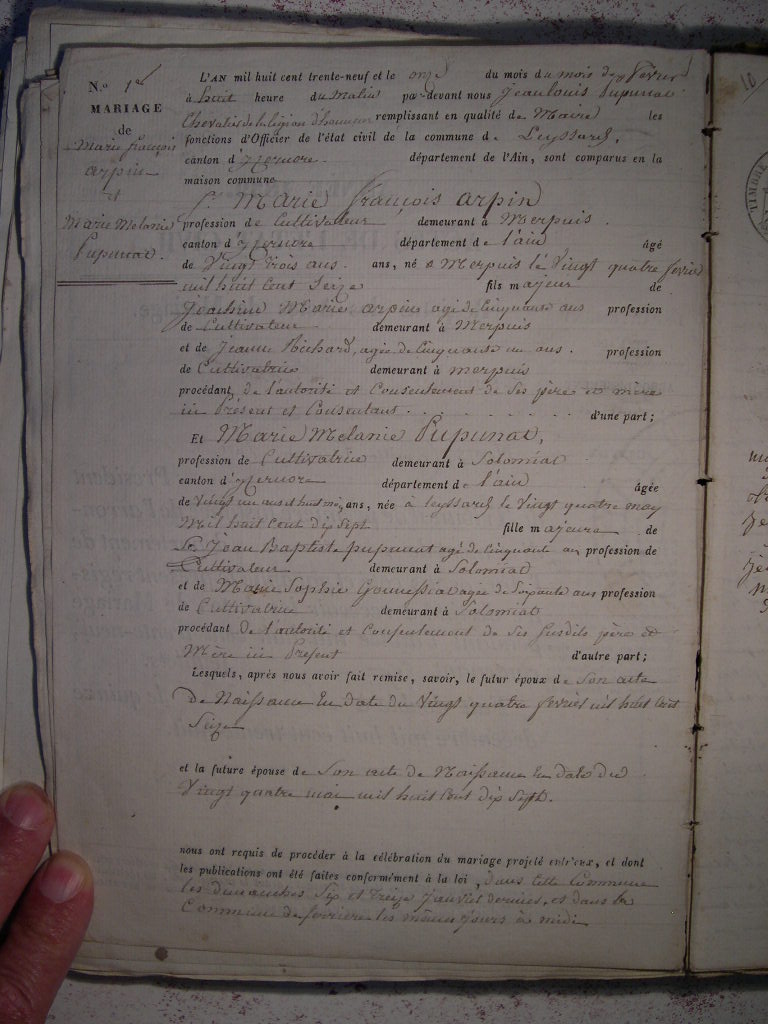 N.o 1er
MARIAGE
de
Marie françois
arpin
et
Marie Melanie
Pupunat.
L'AN mil huit cent trente-neuf et le onze du mois du mois de février
à huit heure du Matin par-devant nous Jean louis Pupunat
Chevalier de la légion d'honneur remplissant en qualité de Maire les
fonctions d'Officier de l'état civil de la commune de Leyssard,
canton d'yzernore. département de l'Ain, sont comparus en la
maison commune
Sr Marie françois arpin
profession de Cultivateur demeurant à Merpuis.
canton d'yzernore département de l'ain âgé
de Vingt trois ans. ans, né à Merpuis le Vingt quatre fevrier
mil huit Cent Seize fils majeur de
Joachim Marie arpin agé de Cinquante ans profession
de Cultivateur demeurant à Merpuis
et de Jeanne Richard, agée de Cinquante un ans. profession
de Cultivatrice demeurant à merpuis
procédant de l'autorité et Consentement de Ses père et mère
ici Présent et Consentant. d'une part;
Et Marie Melanie Pupunat,
profession de Cultivatrice demeurant à Solomiat
canton d'yzernore département de l'ain âgée
de Vingt un ans et huit moi, ans, née à leyssard le Vingt quatre may
Mil huit Cent Dix Sept fille majeure de
Sr Jean Baptiste pupunat agé de Cinquante ans profession de
Cultivateur demeurant à Solomiat
et de Marie Sophie Gonnessiat agée de Soixante ans profession
de Cultivatrice demeurant à Solomiat
procédant de l'autorité et Consentement de Ses Susdits père et
Mère ici Présent d'autre part;
Lesquels, après nous avoir fait remise, savoir, le futur époux de Son acte
De Naissance En date du Vingt quatre fevrier mil huit Cent
Seize
et la future épouse de Son acte de Naissance En date du
Vingt quatre mai mil huit Cent dix Sept.
nous ont requis de procéder à la célébration du mariage projeté entr'eux, et dont
les publications ont été faites conformément à la loi, dans cette Commune
les dimanches Six et treize Janvier dernier, et dans la
Commune de les mêmes Jours à midi
10
TIMBRE